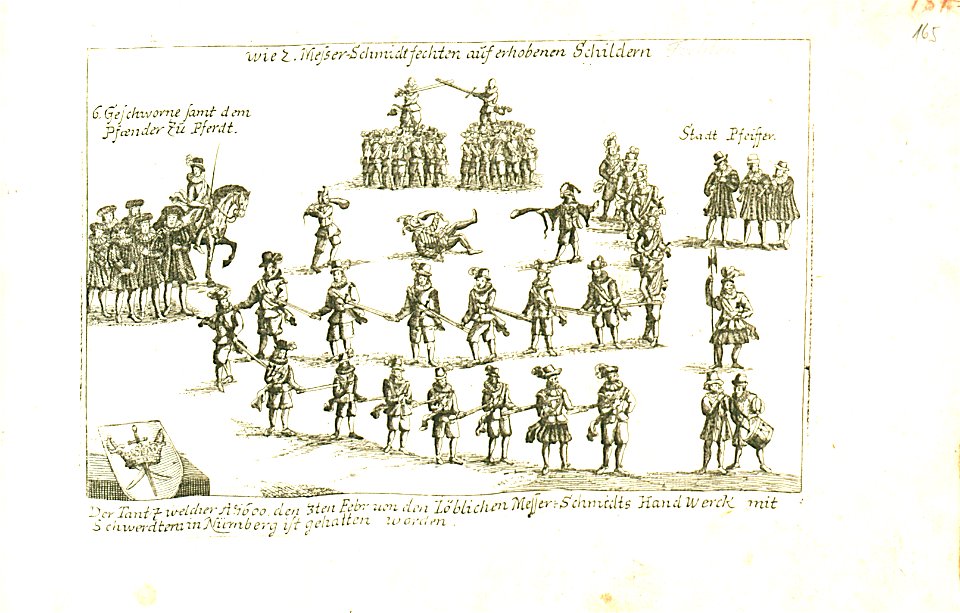 165
wie 2. Messer-Schmidt fechten auf erhobenen Schildern
6. Geschworne samt dem
Pfænder zu Pferdt.
Stadt Pfeiffer.
Der Tantz welcher Aō 1600. den 3ten Febr von den Löblichen Messer-Schmidts Hand Werck mit
Schwerdtern in Nürnberg ist gehalten worden.